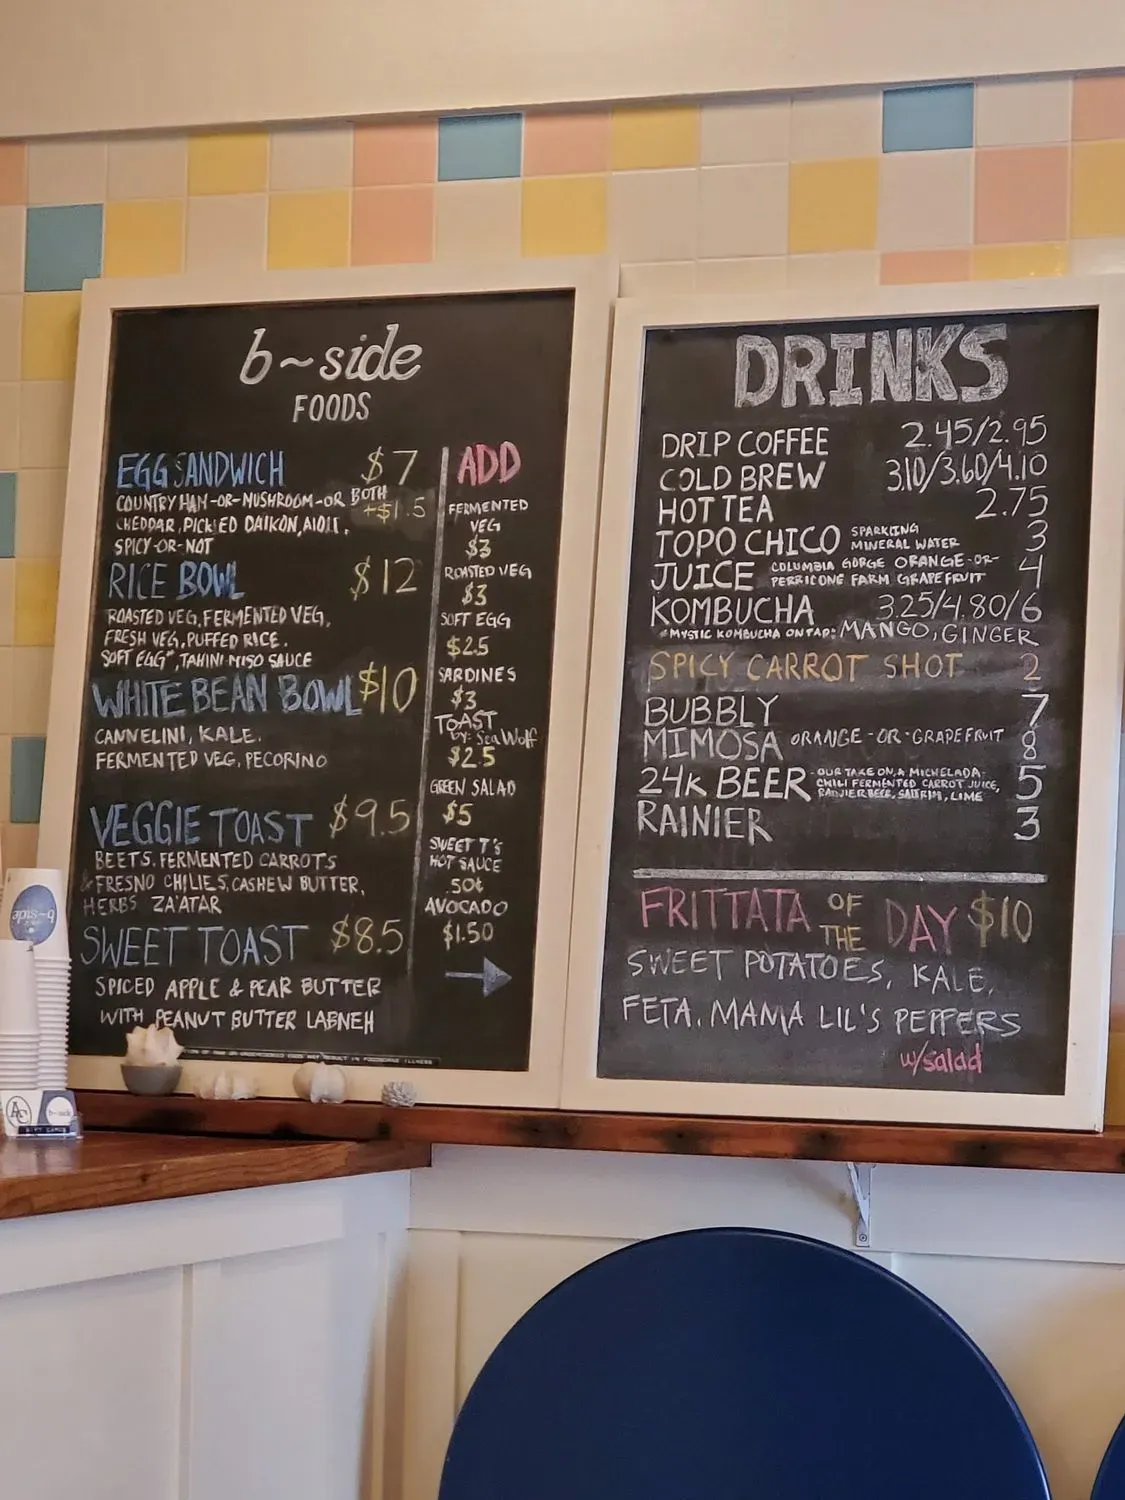 b~side
FOODS
EGG SANDWICH $7
COUNTRY HAM-OR-MUSHROOM-OR BOTH +$1.5
CHEDDAR, PICKLED DAIKON, AIOLI,
SPICY-OR-NOT
RICE BOWL $12
ROASTED VEG, FERMENTED VEG,
FRESH VEG, PUFFED RICE,
SOFT EGG*, TAHINI MISO SAUCE
WHITE BEAN BOWL $10
CANNELINI, KALE,
FERMENTED VEG, PECORINO
VEGGIE TOAST $9.5
BEETS, FERMENTED CARROTS
& FRESNO CHILIES, CASHEW BUTTER,
HERBS ZA'ATAR
SWEET TOAST $8.5
SPICED APPLE & PEAR BUTTER
WITH PEANUT BUTTER LABNEH
ADD
FERMENTED
VEG
$3
ROASTED VEG
$3
SOFT EGG
$2.5
SARDINES
$3
TOAST
by: Sea Wolf
$2.5
GREEN SALAD
$5
SWEET T'S
HOT SAUCE
.50¢
AVOCADO
$1.50
DRINKS
DRIP COFFEE 2.45/2.95
COLD BREW 3.10/3.60/4.10
HOT TEA 2.75
TOPO CHICO SPARKLING MINERAL WATER 3
JUICE COLUMBIA GORGE ORANGE-OR- PERRICONE FARM GRAPEFRUIT 4
KOMBUCHA 3.25/4.80/6
*MYSTIC KOMBUCHA ON TAP: MANGO, GINGER
SPICY CARROT SHOT 2
BUBBLY 7
MIMOSA ORANGE-OR-GRAPEFRUIT 8
24K BEER -OUR TAKE ON A MICHELADA- CHILI FERMENTED CARROT JUICE, RAINIER BEER, LIME 5
RAINIER 3
FRITTATA OF THE DAY $10
SWEET POTATOES, KALE,
FETA, MAMA LIL'S PEPPERS
w/salad
b~side
AC
b~side